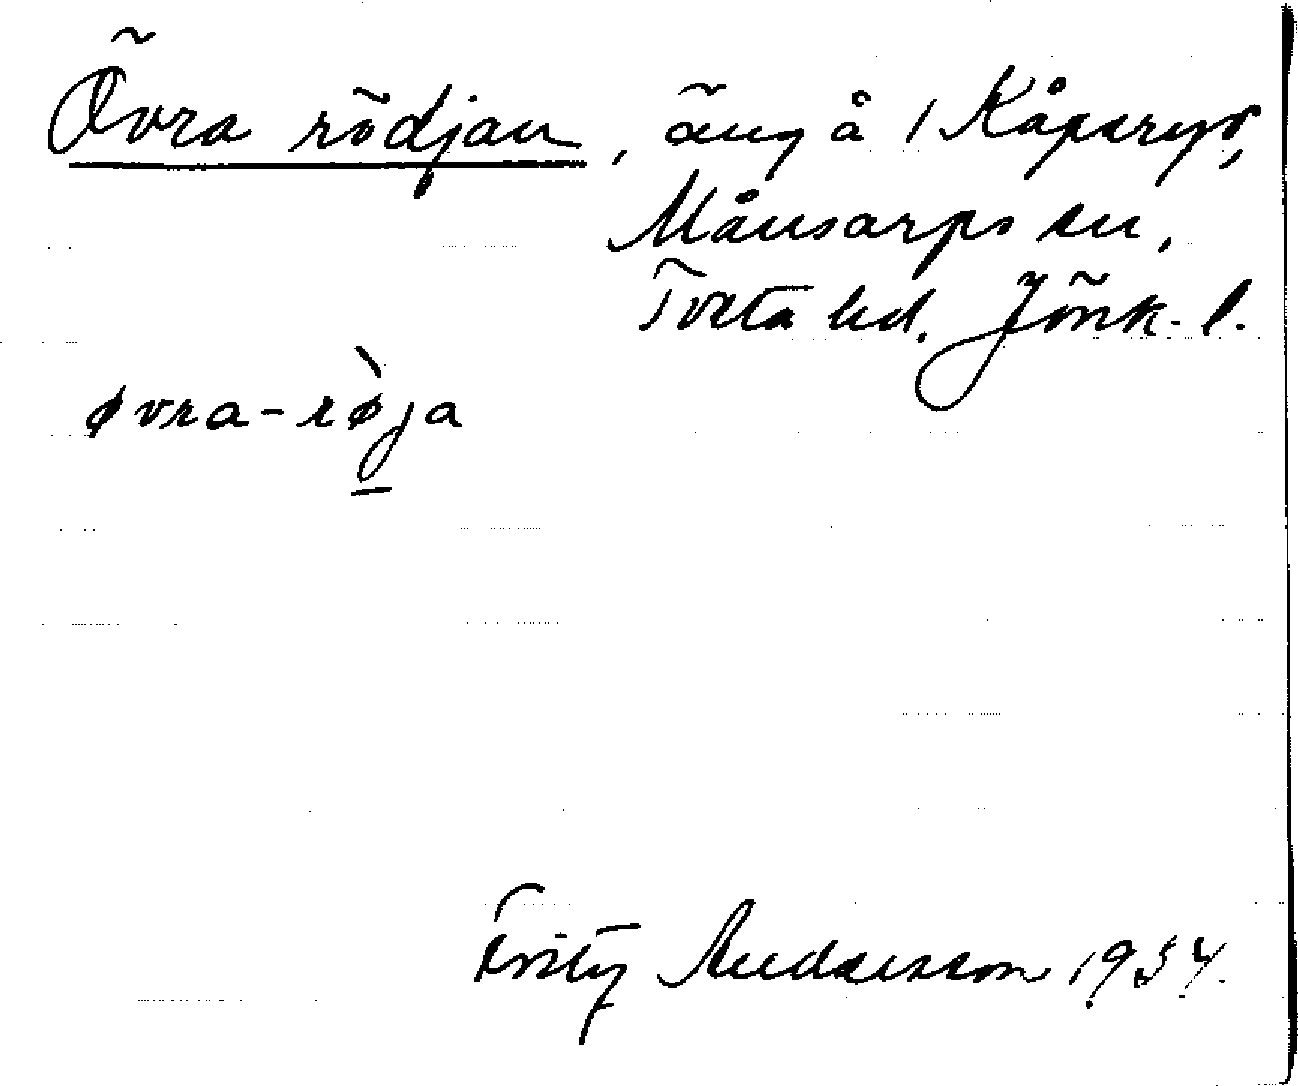 Övra rödjan, äng å 1 Kåperyd,
Månsarps sn,
Tveta hd. Jönk. l.
øvra-røja
Fritz Andersson 1934.